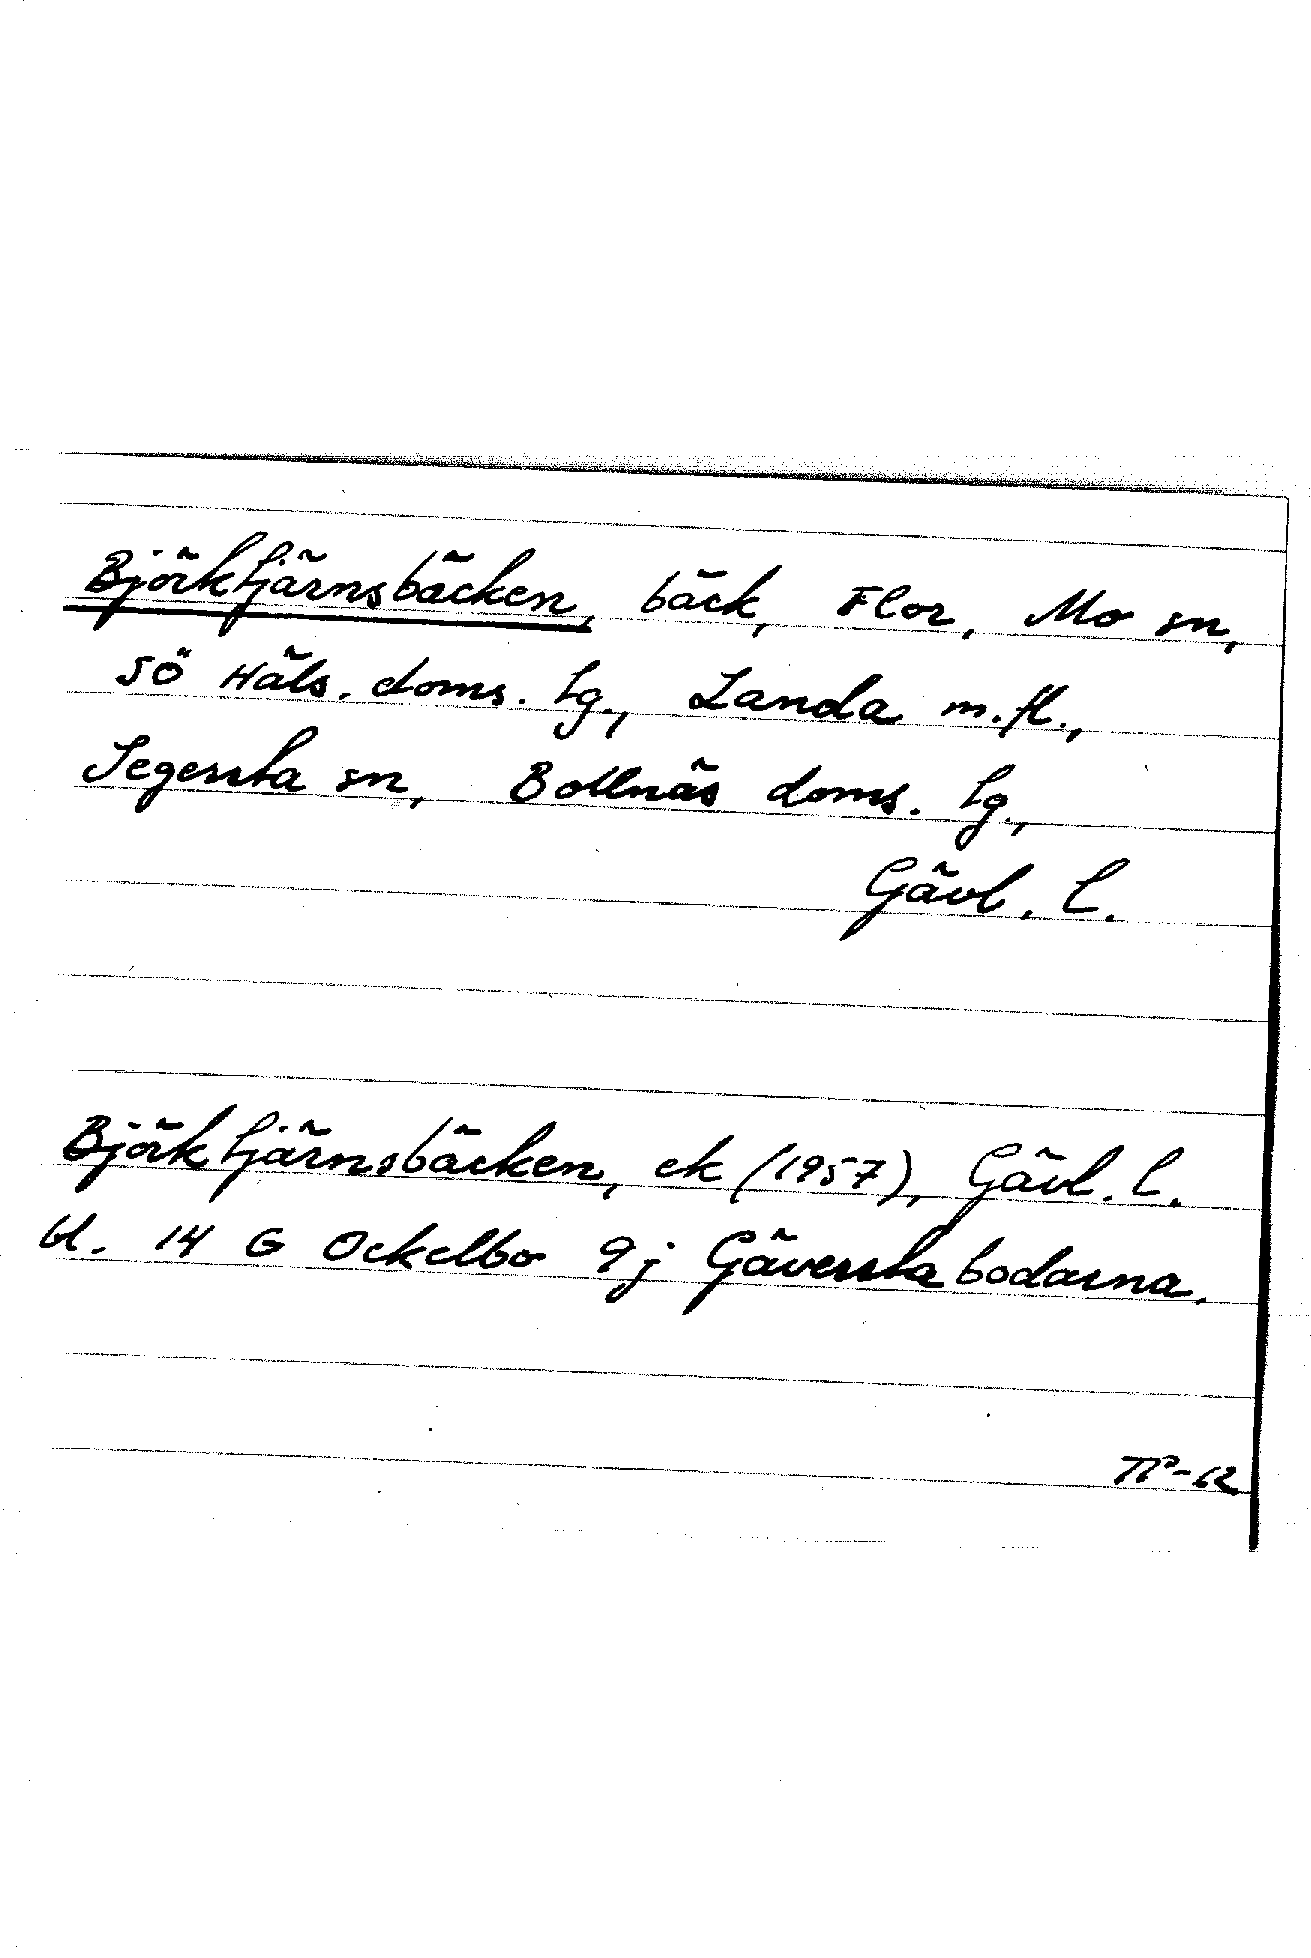 Björktjärnsbäcken, bäck, Flor, Mo sn,
SÖ Häls. doms. tg., Landa m.fl.,
Segersta sn, Bollnäs doms. tg.,
Gävl. l.
Björktjärnsbäcken, ek (1957), Gävl. l.
bl. 14 G Ockelbo 9j Gäverstabodarna.
-62